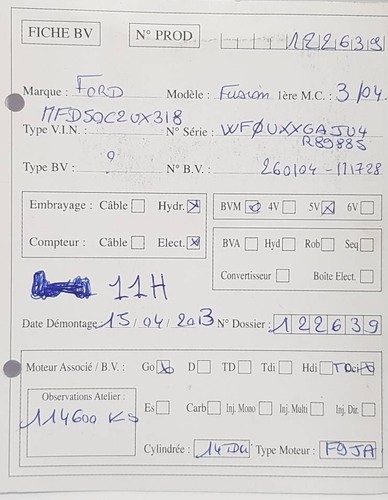 FICHE BV N° PROD 122639
Marque : FORD Modèle : Fusion 1ère M.C. : 3/04
MFDSQC2UX318
Type V.I.N. : N° Série : WFØUXXGAJU4
R89885
Type BV : ? N° B.V. : 260104-111728
Embrayage : Câble Hydr. BVM 4V 5V 6V
Compteur : Câble Elect. BVA Hyd Rob Seq
Convertisseur Boîte Elect.
11H
Date Démontage 15/04/2013 N° Dossier : 122639
Moteur Associé / B.V. : Go D TD Tdi Hdi TDci
Observations Atelier : Es Carb Inj. Mono Inj. Multi Inj. Dir.
114600 KS
Cylindrée : 14TDCi Type Moteur : F9JA